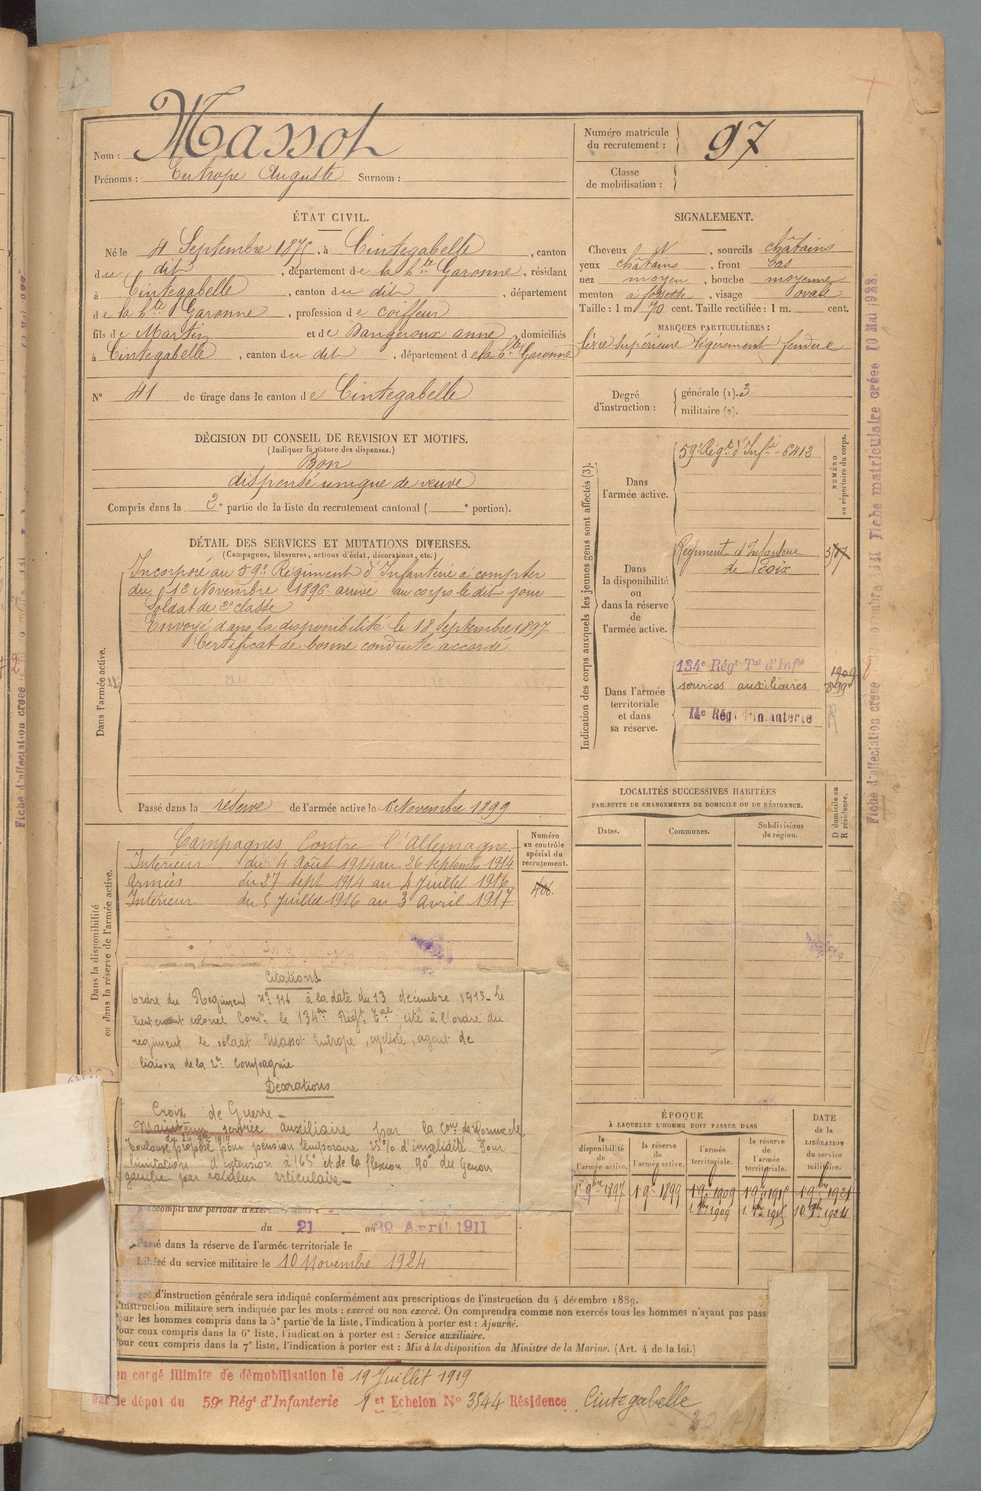 Nom : Massot
Prénoms : Eutrope Auguste Surnom :
Numéro matricule
du recrutement : 97
Classe
de mobilisation :
ÉTAT CIVIL.
Né le 4 Septembre 1875, à Cintegabelle, canton
du dit, département de la hte Garonne, résidant
à Cintegabelle, canton du dit, département
de la hte Garonne, profession de coiffeur
fils de Martin et de Dangeroux anne, domiciliés
à Cintegabelle, canton du dit, département de la hte Garonne
N° 41 de tirage dans le canton de Cintegabelle
SIGNALEMENT.
Cheveux N, sourcils châtains
yeux châtains, front bas
nez moyen, bouche moyenne
menton à fossette, visage ovale
Taille : 1 m 70 cent. Taille rectifiée : 1 m. cent.
MARQUES PARTICULIÈRES :
lèvre supérieure légèrement fendue
Degré
d'instruction :
générale (1). 3
militaire (2).
DÉCISION DU CONSEIL DE REVISION ET MOTIFS.
(Indiquer la nature des dispenses.)
Bon
dispensé unique de veuve
Compris dans la 2e partie de la liste du recrutement cantonal ( e portion).
DÉTAIL DES SERVICES ET MUTATIONS DIVERSES.
(Campagnes, blessures, actions d'éclat, décorations, etc.)
Dans l'armée active.
Incorporé au 59e Régiment d'Infanterie à compter
du 12 Novembre 1896 arrivé au corps le dit jour
soldat de 2e classe
Envoyé dans la disponibilité le 18 Septembre 1897
Certificat de bonne conduite accordé
Passé dans la réserve de l'armée active le 1er Novembre 1899
Indication des corps auxquels les jeunes gens sont affectés (3).
NUMÉRO
au répertoire du corps.
Dans
l'armée active.
59e Régt d'Infie - 6413
Dans
la disponibilité
ou
dans la réserve
de
l'armée active.
Régiment d'Infanterie
de Foix
Dans l'armée
territoriale
et dans
sa réserve.
134e Régt Tal d'Infie
services auxiliaires
14e Régt d'Infanterie
1909
LOCALITÉS SUCCESSIVES HABITÉES
PAR SUITE DE CHANGEMENTS DE DOMICILE OU DE RÉSIDENCE.
Dates.
Communes.
Subdivisions
de région.
D domicile ou
R résidence.
Dans la disponibilité
ou dans la réserve de l'armée active.
Numéro
au contrôle
spécial du
recrutement.
Campagnes Contre l'Allemagne
Intérieur du 4 Août 1914 au 26 septembre 1914
Armées du 27 sept 1914 au 4 Juillet 1916
Intérieur du 5 Juillet 1916 au 3 avril 1917
Citations
Ordre du Régiment n° 116 à la date du 13 décembre 1915 - Le
lieutenant colonel Comt le 134me Régt Tal cite à l'ordre du
régiment le soldat Massot Eutrope, cycliste, agent de
liaison de la 2e Compagnie
Décorations
Croix de Guerre -
Maintenu service auxiliaire par la Com de réforme de
Toulouse proposé pour pension temporaire 25 % d'invalidité Pour
limitation d'extension à 165° et de la flexion 90° du genou
gauche par raideur articulaire -
A accompli une période d'exercices
du 21 au 29 Avril 1911
Passé dans la réserve de l'armée territoriale le
Libéré du service militaire le 10 Novembre 1924
ÉPOQUE
À LAQUELLE L'HOMME DOIT PASSER DANS
la
disponibilité
de
l'armée active.
la réserve
de
l'armée active.
l'armée
territoriale.
la réserve
de
l'armée
territoriale.
DATE
de la
LIBÉRATION
du service
militaire.
1er 9bre 1897
1er 9e 1899
1er 9e 1909
1er 9e 1915
1er 9bre 1921
d'instruction générale sera indiqué conformément aux prescriptions de l'instruction du 4 décembre 1889.
L'instruction militaire sera indiquée par les mots : exercé ou non exercé. On comprendra comme non exercés tous les hommes n'ayant pas pass
Pour les hommes compris dans la 5e partie de la liste, l'indication à porter est : Ajourné.
Pour ceux compris dans la 6e liste, l'indication à porter est : Service auxiliaire.
Pour ceux compris dans la 7e liste, l'indication à porter est : Mis à la disposition du Ministre de la Marine. (Art. 4 de la loi.)
en congé illimité de démobilisation le 19 Juillet 1919
par le dépôt du 59e Régt d'Infanterie 1er Echelon N° 3544 Résidence Cintegabelle
Fiche matriculaire créée 10 Mai 1922
Fiche d'affectation créée